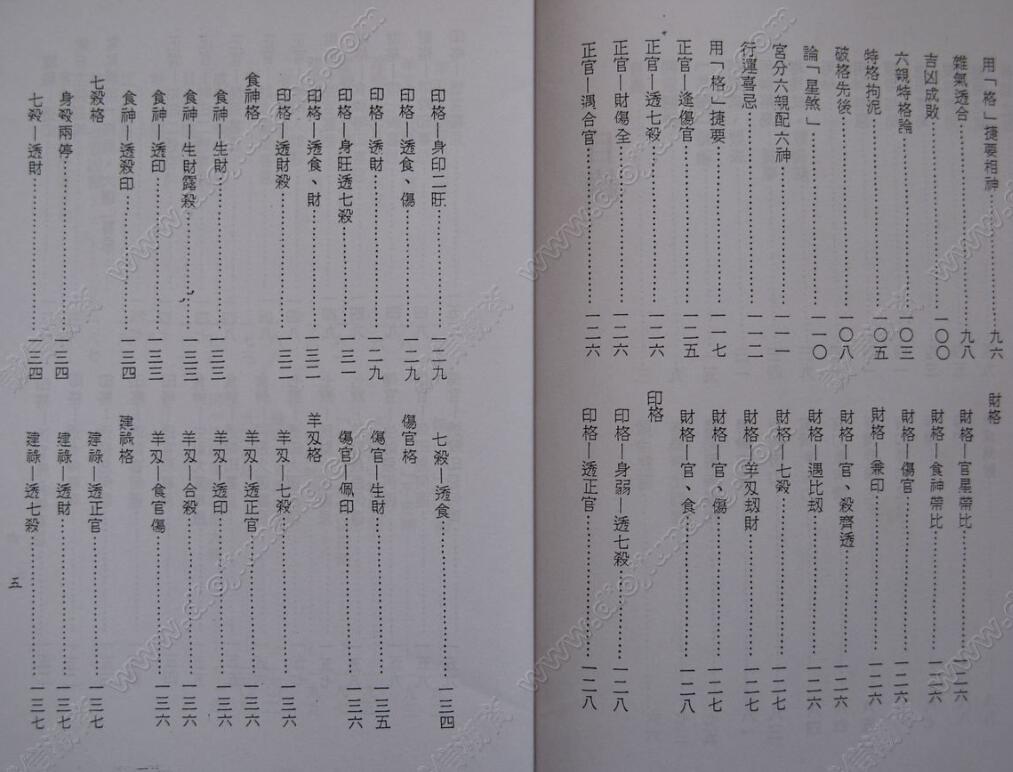 用「格」捷要相神……九六
雜氣透合……九八
吉凶成敗……一〇〇
六親特格論……一〇三
特格拘泥……一〇五
破格先後……一〇八
論「星煞」……一一〇
宮分六親配六神……一一一
行運喜忌……一一二
用「格」捷要……一一七
正官—逢傷官……一二五
正官—透七殺……一二六
正官—財傷全……一二六
正官—遇合官……一二六
財格
財格—官星帶比……一二六
財格—食神帶比……一二六
財格—傷官……一二六
財格—兼印……一二六
財格—官、殺齊透……一二六
財格—遇比刼……一二六
財格—七殺……一二七
財格—羊刄刼財……一二七
財格—官、傷……一二七
財格—官、食……一二八
印格
印格—身弱—透七殺……一二八
印格—透正官……一二八
印格—身印二旺……一二九
印格—透食、傷……一二九
印格—透財……一二九
印格—身旺透七殺……一三一
印格—透食、財……一三二
印格—透財殺……一三二
食神格
食神—生財……一三三
食神—生財露殺……一三三
食神—透印……一三三
食神—透殺印……一三四
七殺格
身殺兩停……一三四
七殺—透財……一三四
七殺—透食……一三四
傷官格
傷官—生財……一三五
傷官—佩印……一三六
羊刄格
羊刄—七殺……一三六
羊刄—透正官……一三六
羊刄—透印……一三六
羊刄—合殺……一三六
羊刄—食官傷……一三六
建祿格
建祿—透正官……一三七
建祿—透財……一三七
建祿—透七殺……一三七
五
www.djfung.com